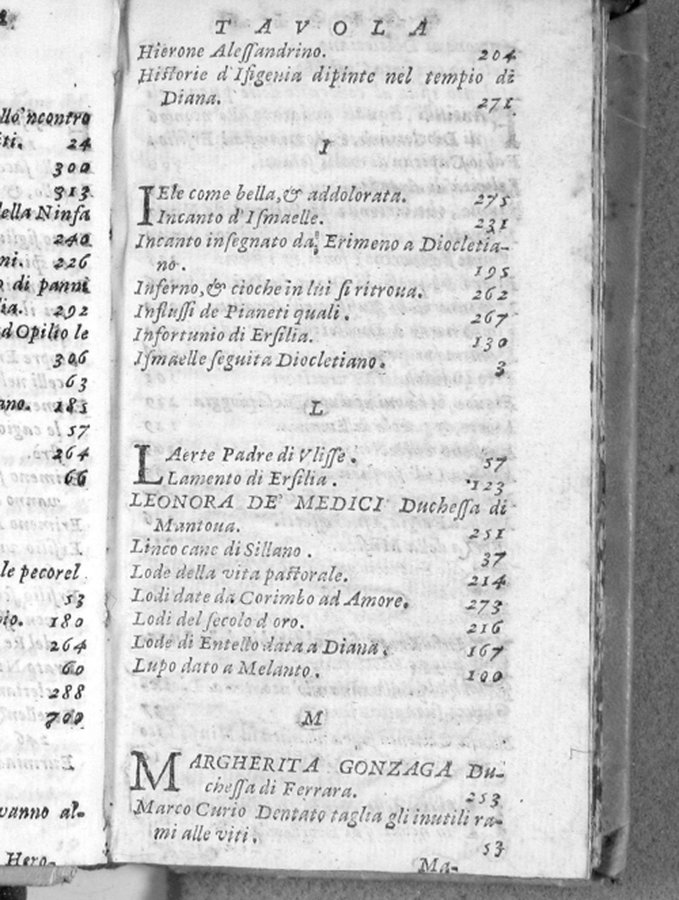 llo'ncontro
iti. 24
300
313
della Ninfa
240
ni. 226
di panni
lia. 292
d Opilio le
306
63
ano. 185
57
264
66
le pecorel
53
180
264
60
288
700
vanno al-
Hero-
TAVOLA
Hierone Alessandrino. 204
Historie d'Ifigenia dipinte nel tempio di
Diana. 271
I
IEle come bella, & addolorata. 275
Incanto d'Ismaelle. 231
Incanto insegnato da Erimeno a Diocletia-
no. 195
Inferno, & cioche in lui si ritroua. 262
Influssi de Pianeti quali. 267
Infortunio di Ersilia. 130
Ismaelle seguita Diocletiano. 3
L
LAerte Padre di Vlisse. 57
Lamento di Ersilia. 123
LEONORA DE' MEDICI Duchessa di
Mantoua. 251
Linco cane di Sillano. 37
Lode della vita pastorale. 214
Lodi date da Corimbo ad Amore. 273
Lodi del secolo d oro. 216
Lode di Entello data a Diana. 167
Lupo dato a Melanto. 100
M
MARGHERITA GONZAGA Du-
chessa di Ferrara. 253
Marco Curio Dentato taglia gli inutili ra-
mi alle viti. 53
Ma-